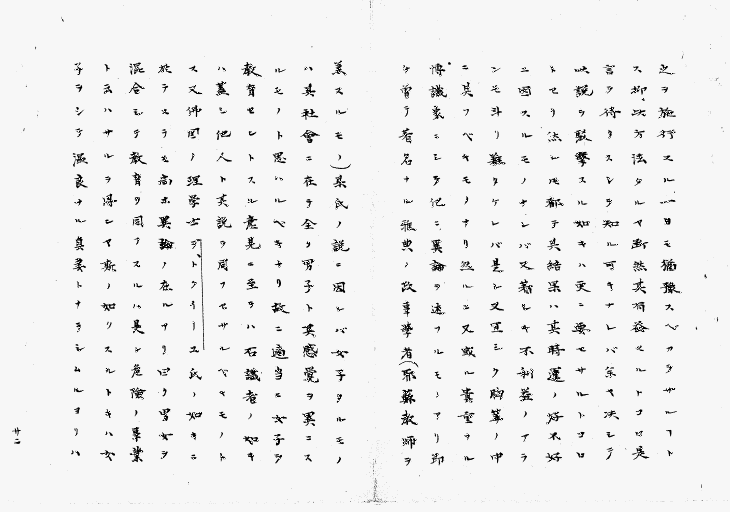 之ヲ施行スル一日モ猶豫スベカラザルコト
ス抑此方法タルヤ断然其有益ナルトコロ是
言ヲ待タスシテ知ル可キナレバ余ヤ決シテ
此説ヲ駁撃スル如キハ更ニ要セサルトコロ
トセリ然レ𪜈都テ其結果ハ其時運ノ好不好
ニ因スルモノナレバ又著シキ不利益ノアラ
ンモ斗リ難タケレバ是レ又宜シク胸算ノ中
ニ具フベキモノナリ然ルニ又或ル貴重ナル
博識家ニシテ已ニ異論ヲ述フルモノアリ即
チ曽テ著名ナル雅典ノ政事學者(耶蘇教師ヲ
兼スルモノ)某氏ノ説ニ因レバ女子タルモノ
ハ其社會ニ在テ全ク男子ト其感覺ヲ異ニス
ルモノト思ハルベキナリ故ニ適当ニ女子ヲ
教育セントスル意見ニ至テハ右識者ノ如キ
ハ蓋シ他人ト其説ヲ同フセサルベキモノト
ス又佛国ノ理学士ヲトクイリユエ氏ノ如キニ
於テスラモ尚ホ異論ノ在ルアリ曰ク男女ヲ
混合シテ教育ヲ同フスルハ是レ危険ノ事業
ト云ハサルヲ得ンヤ斯ノ如クスルトキハ女
子ヲシテ温良ナル真妻トナラシムルヨリハ
廿二